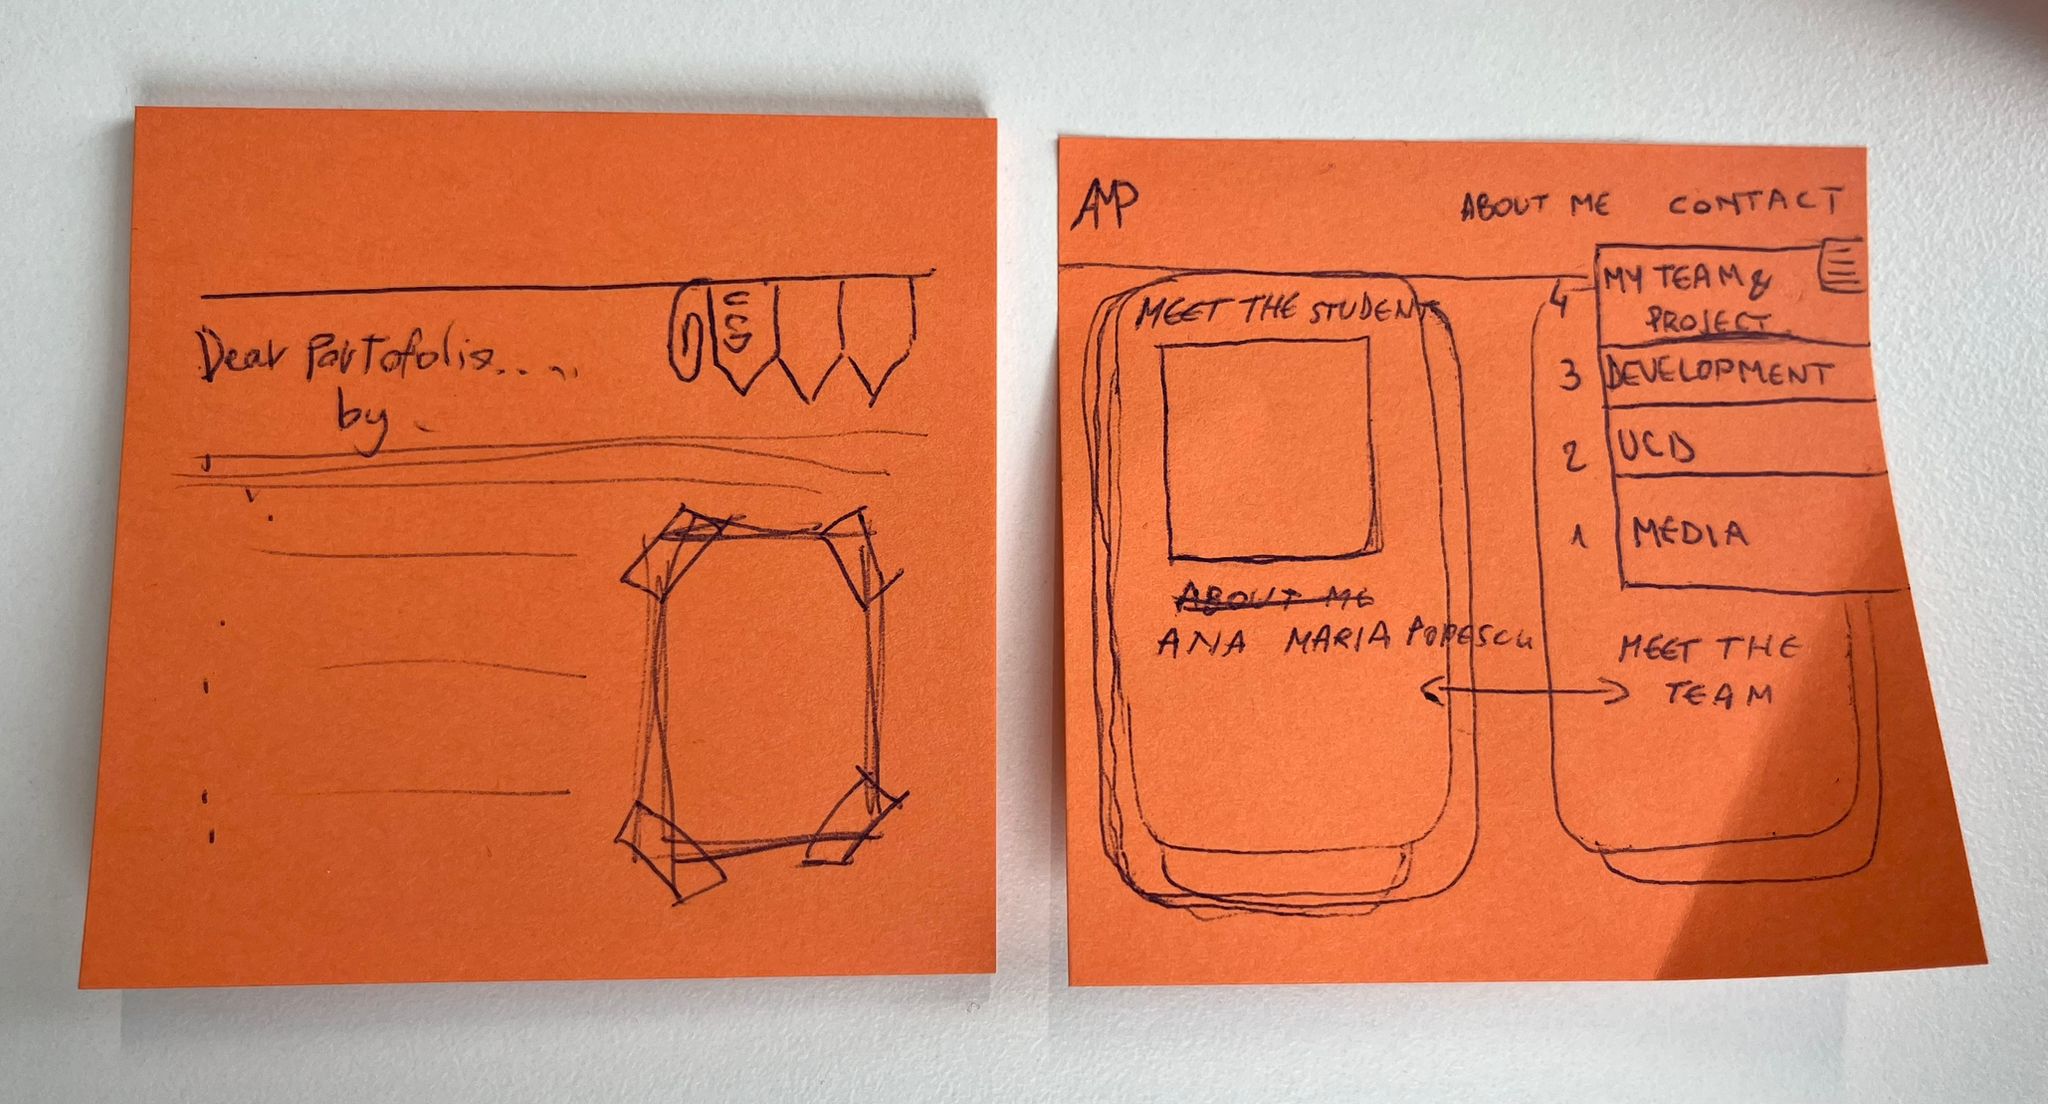 Dear Portofolio.....
by
AMP
ABOUT ME CONTACT
MEET THE STUDENT
ABOUT ME
ANA MARIA POPESCU
4 MY TEAM &
PROJECT
3 DEVELOPMENT
2 UCD
1 MEDIA
MEET THE
TEAM